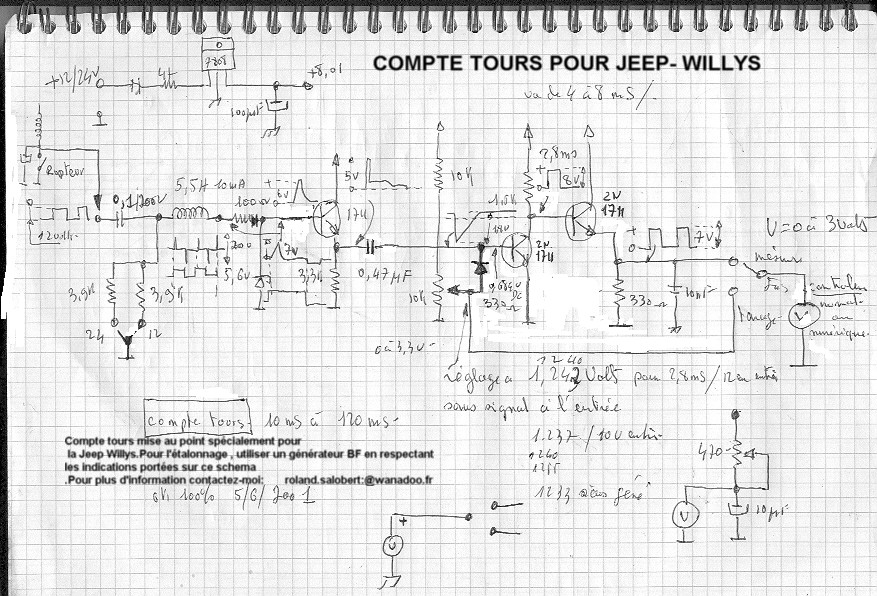 COMPTE TOURS POUR JEEP- WILLYS
va de 4 à 8 ms/.
+12/24V
7808
+8,01
100µF
Rupteur
5,5H 10mA
0,1/200V
100Ω
6V
5V
17U
10K
2,8ms
8V
1,5K
2N
1711
2N
1711
7V
V=0 à 3Volts
mesure
controleur
normal
ou
numérique.
V
tarage
120V
200
7V
5,6V
3,3K
0,47µF
10K
330Ω
10µF
3,9K
3,9K
24
12
0 à 3,3V
1240
Réglage à 1,242 Volt pour 2,8ms/12 en entrée
sans signal à l'entrée
1.237 / 10V entrée
1240
1233 sans géné
compte tours 10 ms à 120 ms-
Compte tours mise au point spécialement pour
la Jeep Willys.Pour l'étalonnage , utiliser un générateur BF en respectant
les indications portées sur ce schema
.Pour plus d'information contactez-moi: roland.salobert:@wanadoo.fr
ok 100% 5/6/2001
470
V
10µF
+
V